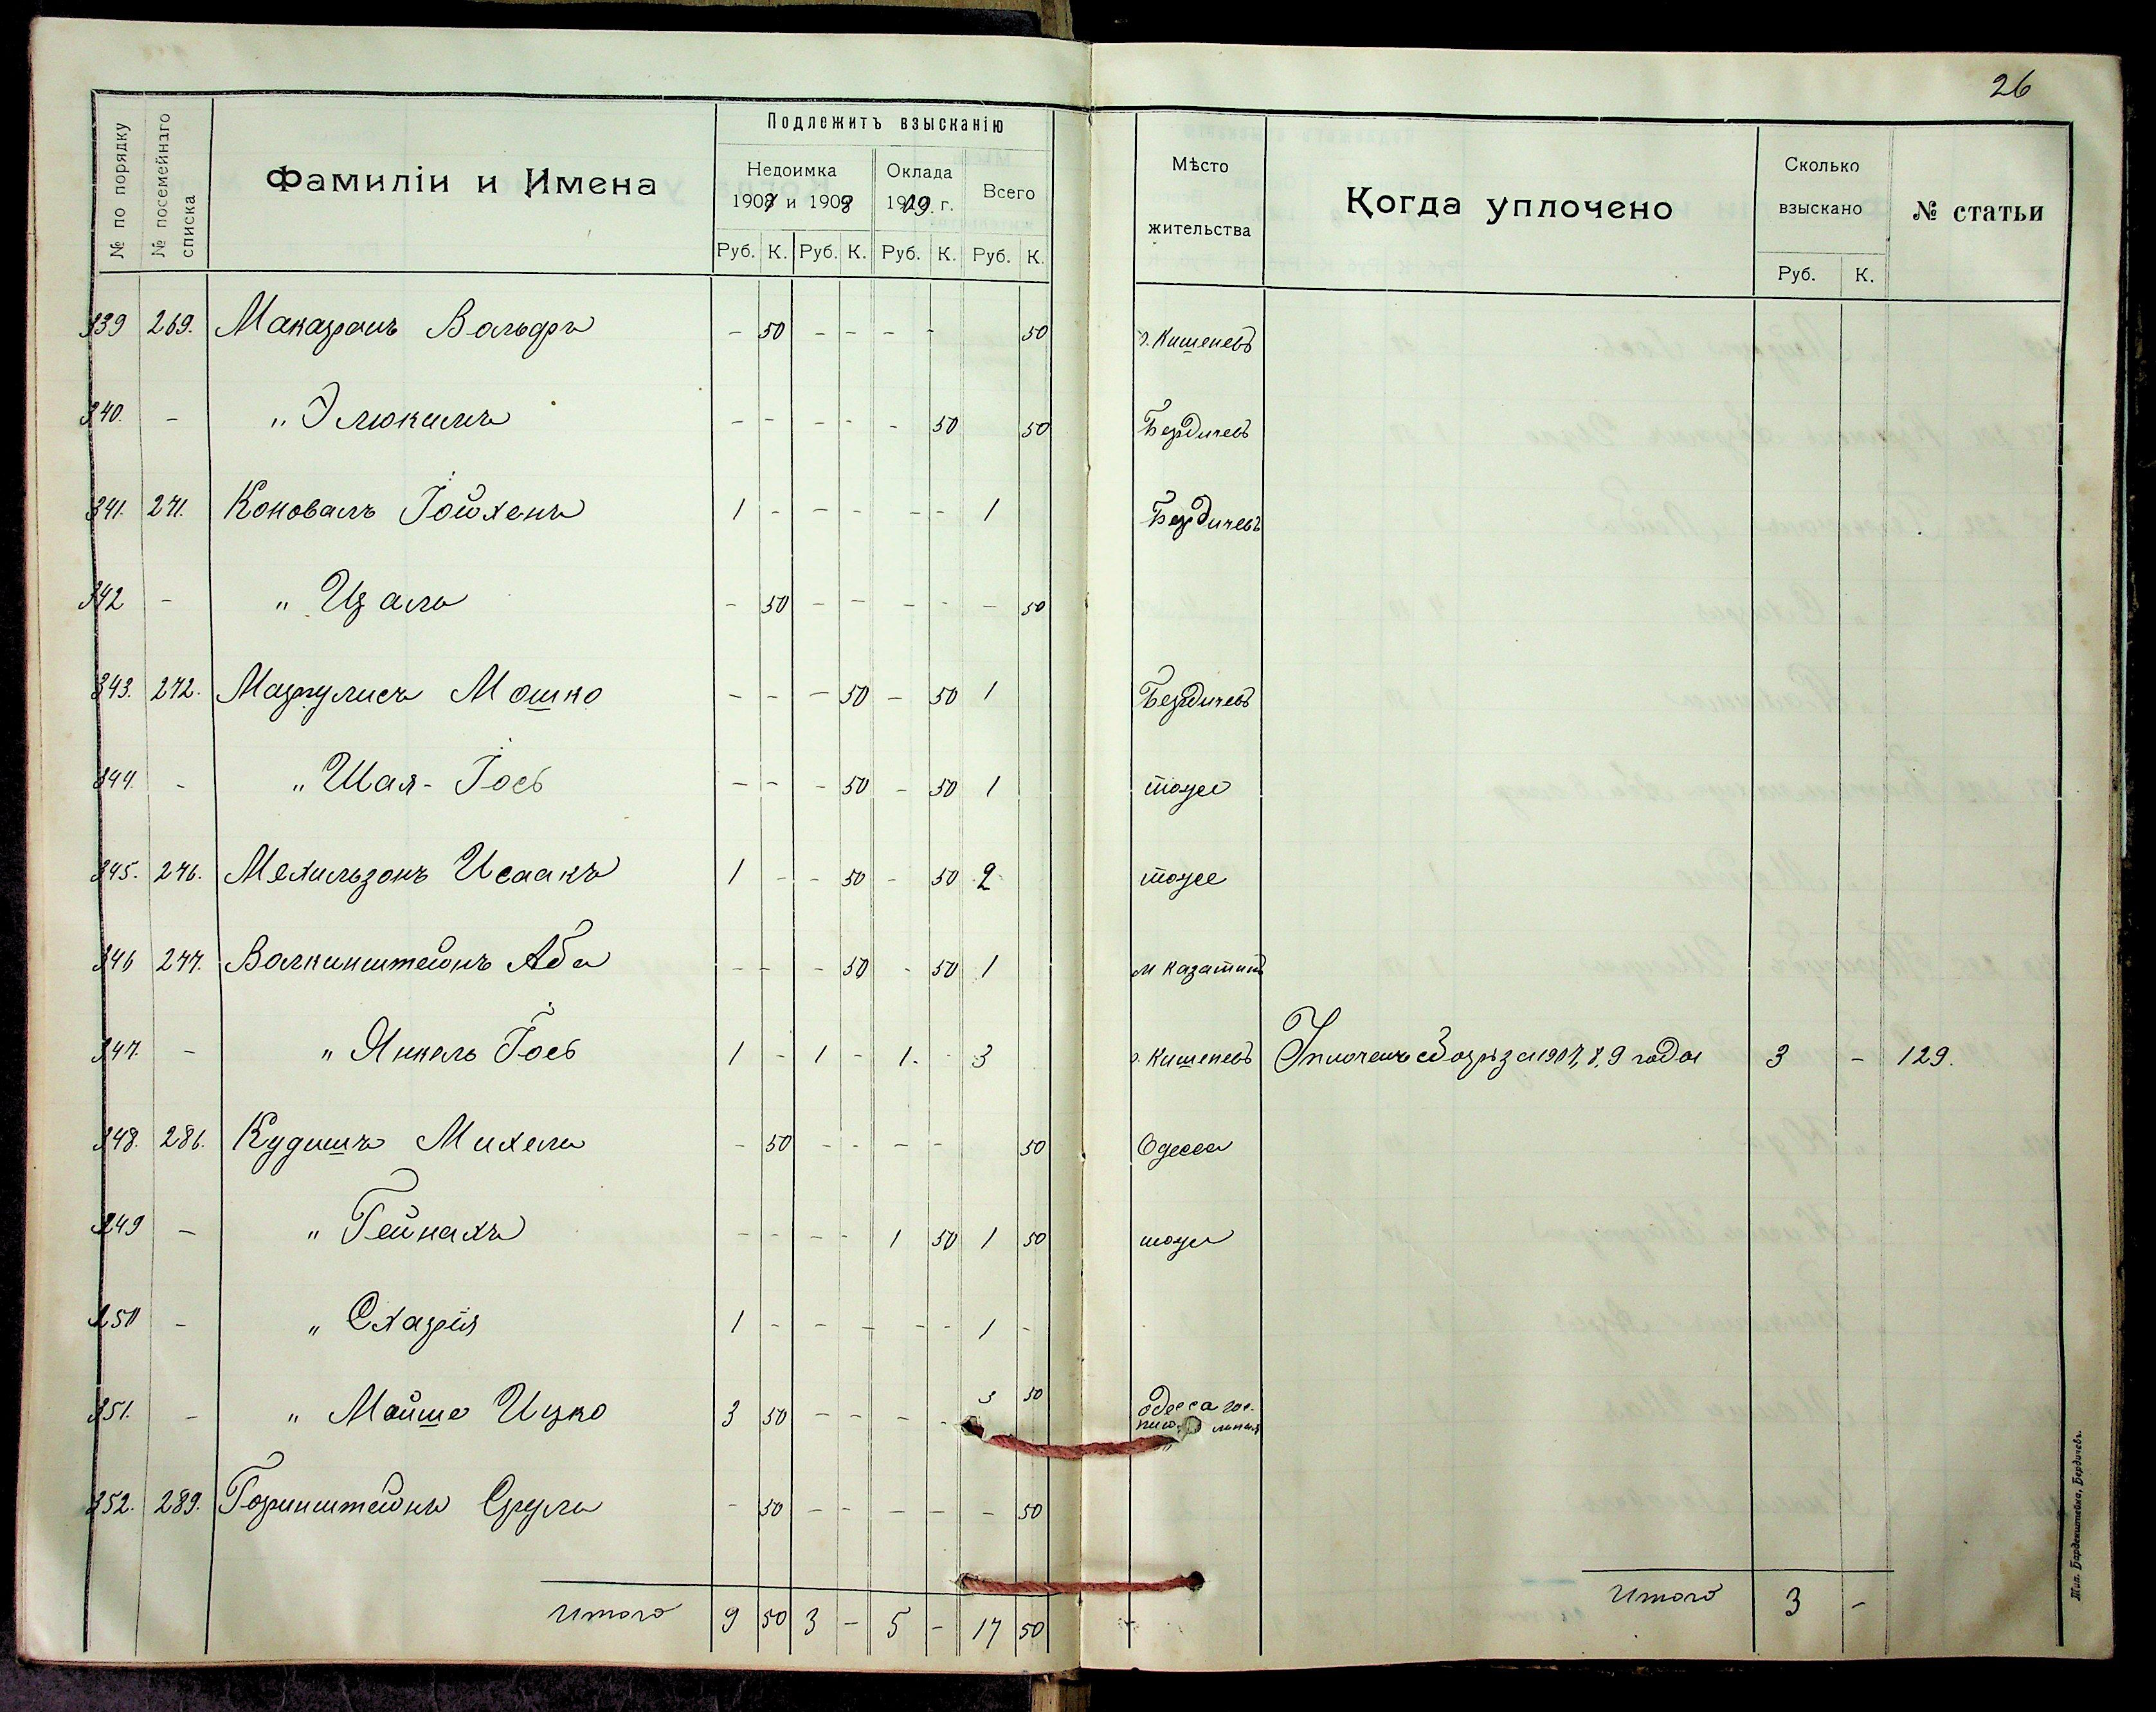 26
№ по порядку
№ посемейнаго списка
Фамиліи и Имена
Подлежитъ взысканію
Недоимка
1907 и 1908
Оклада
1909 г.
Всего
Руб. К. Руб. К. Руб. К. Руб. К.
Мѣсто
жительства
Когда уплочено
Сколько
взыскано
Руб. К.
№ статьи
339 269. Макаронъ Вольфъ - 50 - - - - 50 г. Кишеневъ
340. - " Элюкимъ - - - - - 50 50 Бердичевъ
341. 271. Коновалъ Іойхенъ 1 - - - - - 1 Бердичевъ
342 - " Цаль - 50 - - - - - 50
343. 272. Маргулисъ Мошко - - - 50 - 50 1 Бердичевъ
344. - " Шая-Іось - - - 50 - 50 1 тоже
345. 276. Мехильзонъ Исаакъ 1 - - 50 - 50 2 тоже
346 277. Валкинштейнъ Аба - - - 50 - 50 1 м Казатинъ
347. - " Янкель Іось 1 - 1 - 1. - 3 г. Кишеневъ Уплоченъ сборъ за 1907, 8, 9 года 3 - 129.
348. 286. Кудишъ Михель - 50 - - - - 50 Одесса
349 - " Гейнахъ - - - - 1 50 1 50 тоже
350 - " Схарія 1 - - - - - 1 -
351. - " Мойше Ицко 3 50 - - - - 3 50 Одесса
352. 289. Горинштейнъ Сруль - 50 - - - - - 50
Итого 9 50 3 - 5 - 17 50
Итого 3 -
Тип. Барденштейна, Бердичевъ.